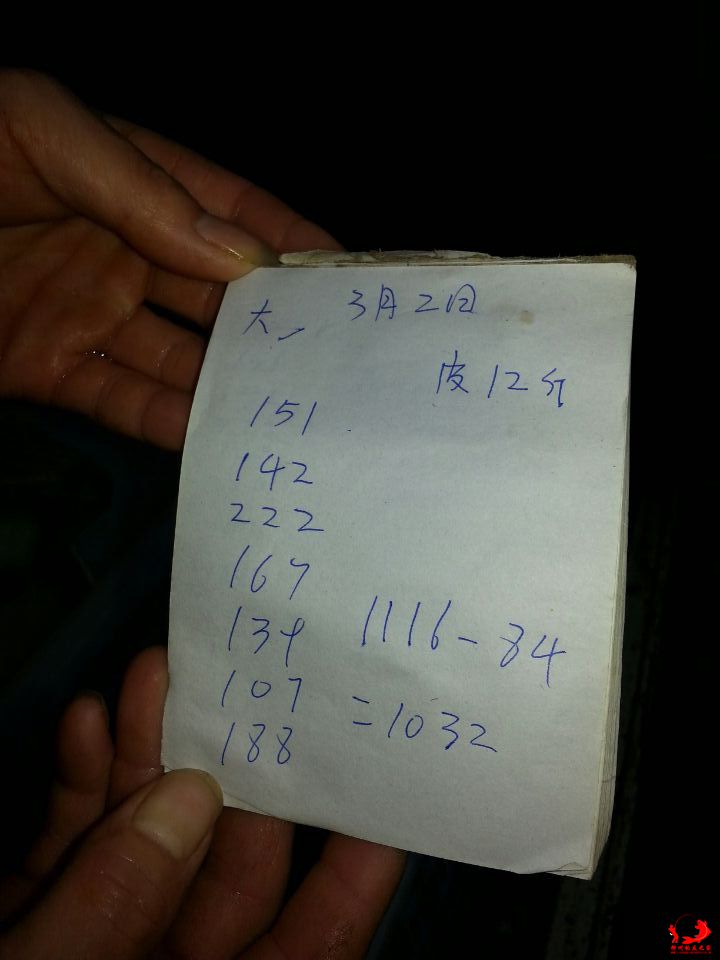 大 3月2日
皮12斤
151
142
222
167
139 1116-84
107 =1032
188